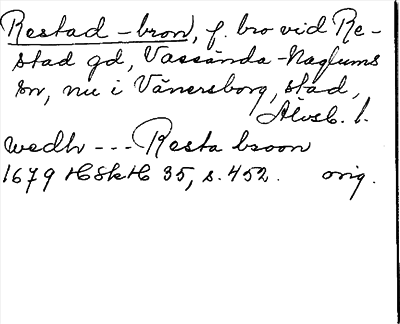 Restad-bron, f. bro vid Re-
stad gd, Vassända-Naglums
sn, nu i Vänersborg, stad,
Älvsb. l.
wedh --- Resta broon
1679 HSkH 35, s. 452. orig.